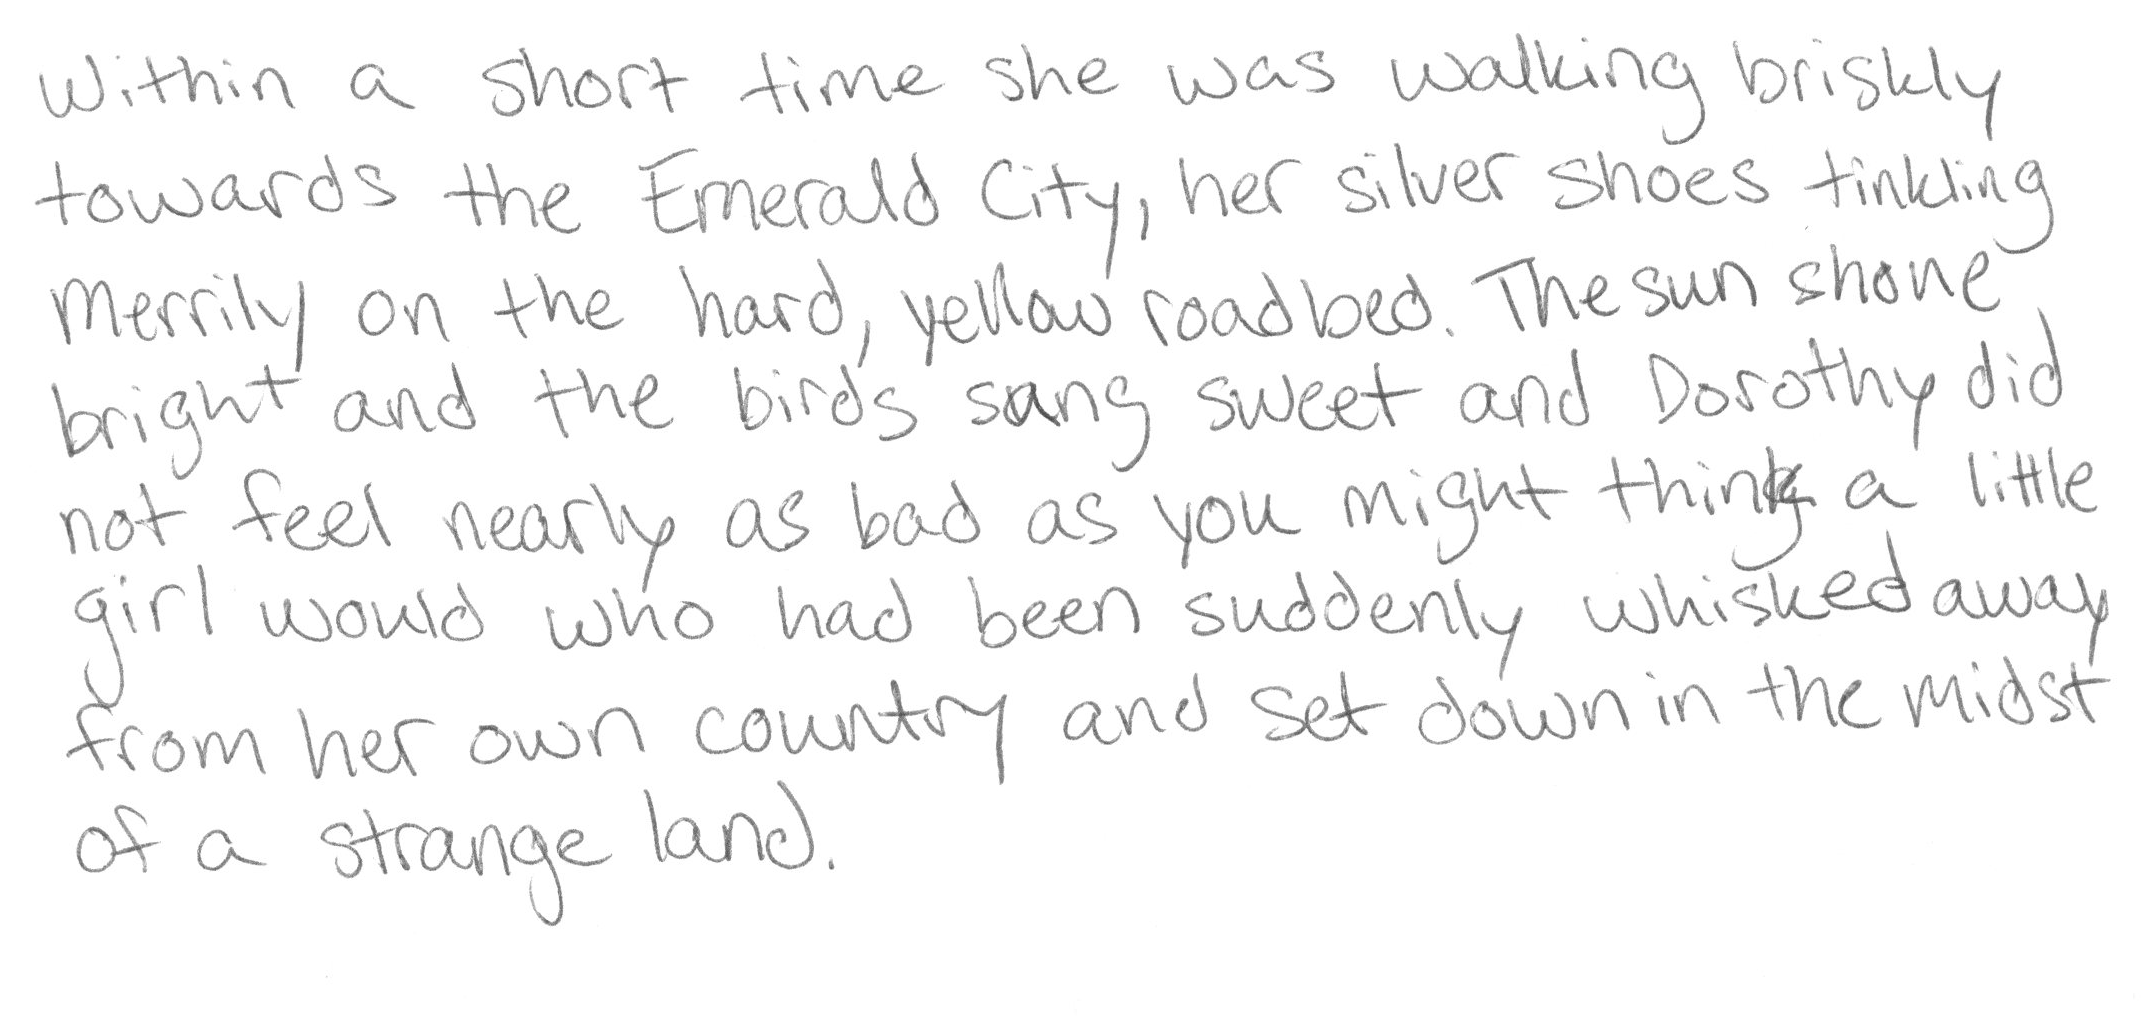 Within a short time she was walking briskly
towards the Emerald City, her silver shoes tinkling
merrily on the hard, yellow roadbed. The sun shone
bright and the birds sang sweet and Dorothy did
not feel nearly as bad as you might think a little
girl would who had been suddenly whisked away
from her own country and set down in the midst
of a strange land.